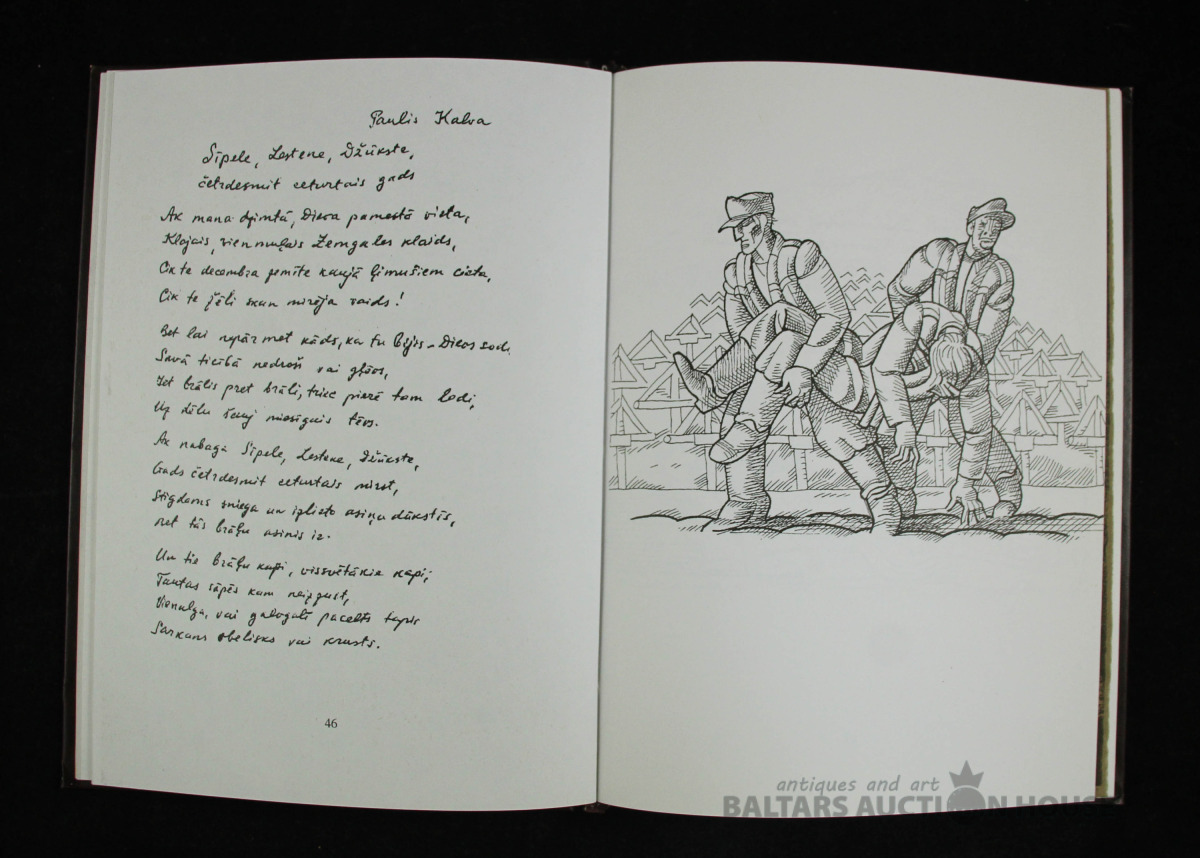 Paulis Kalva
Sīpele, Lestene, Džūkste,
četrdesmit ceturtais gads
Ak mana dzimtā, Dieva pamestā vieta,
Klajais, vienmuļais Zemgales klaids,
Cik te decembra zemīte kaujā ģimušiem cieta,
Cik te žēli skan mirēja vaids!
Bet lai nepārmet kāds, ka tu bijis - Dievs sod.
Savā ticībā nedrošs vai gļēvs,
Iet brālis pret brāli, triec pierē tam lodi,
Uz dēlu šauj miesīgais tēvs.
Ak nabaga Sīpele, Lestene, Džūkste,
Gads četrdesmit ceturtais mirst,
Stigdams sniega un izlieto asiņu dūkstīs,
bet tās brāļu asinis ir.
Un tie brāļu kapi, vissvētākie kapi,
Tautas sāpēs kam neizgust,
Vienalga, vai galvgalī pacelts tapis
Sarkans obelisks vai krusts.
46
antiques and art
BALTARS AUCTION HOUS